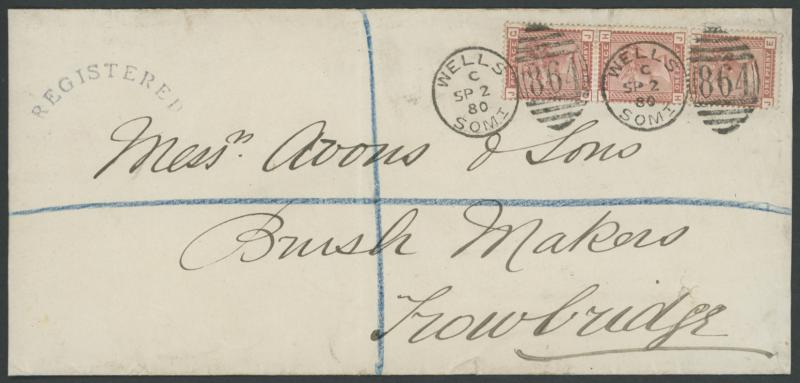 REGISTERED
WELLS
C
SP 2
80
SOMT
864
WELLS
C
SP 2
80
SOMT
864
Messrs Avons & Sons
Brush Makers
Trowbridge